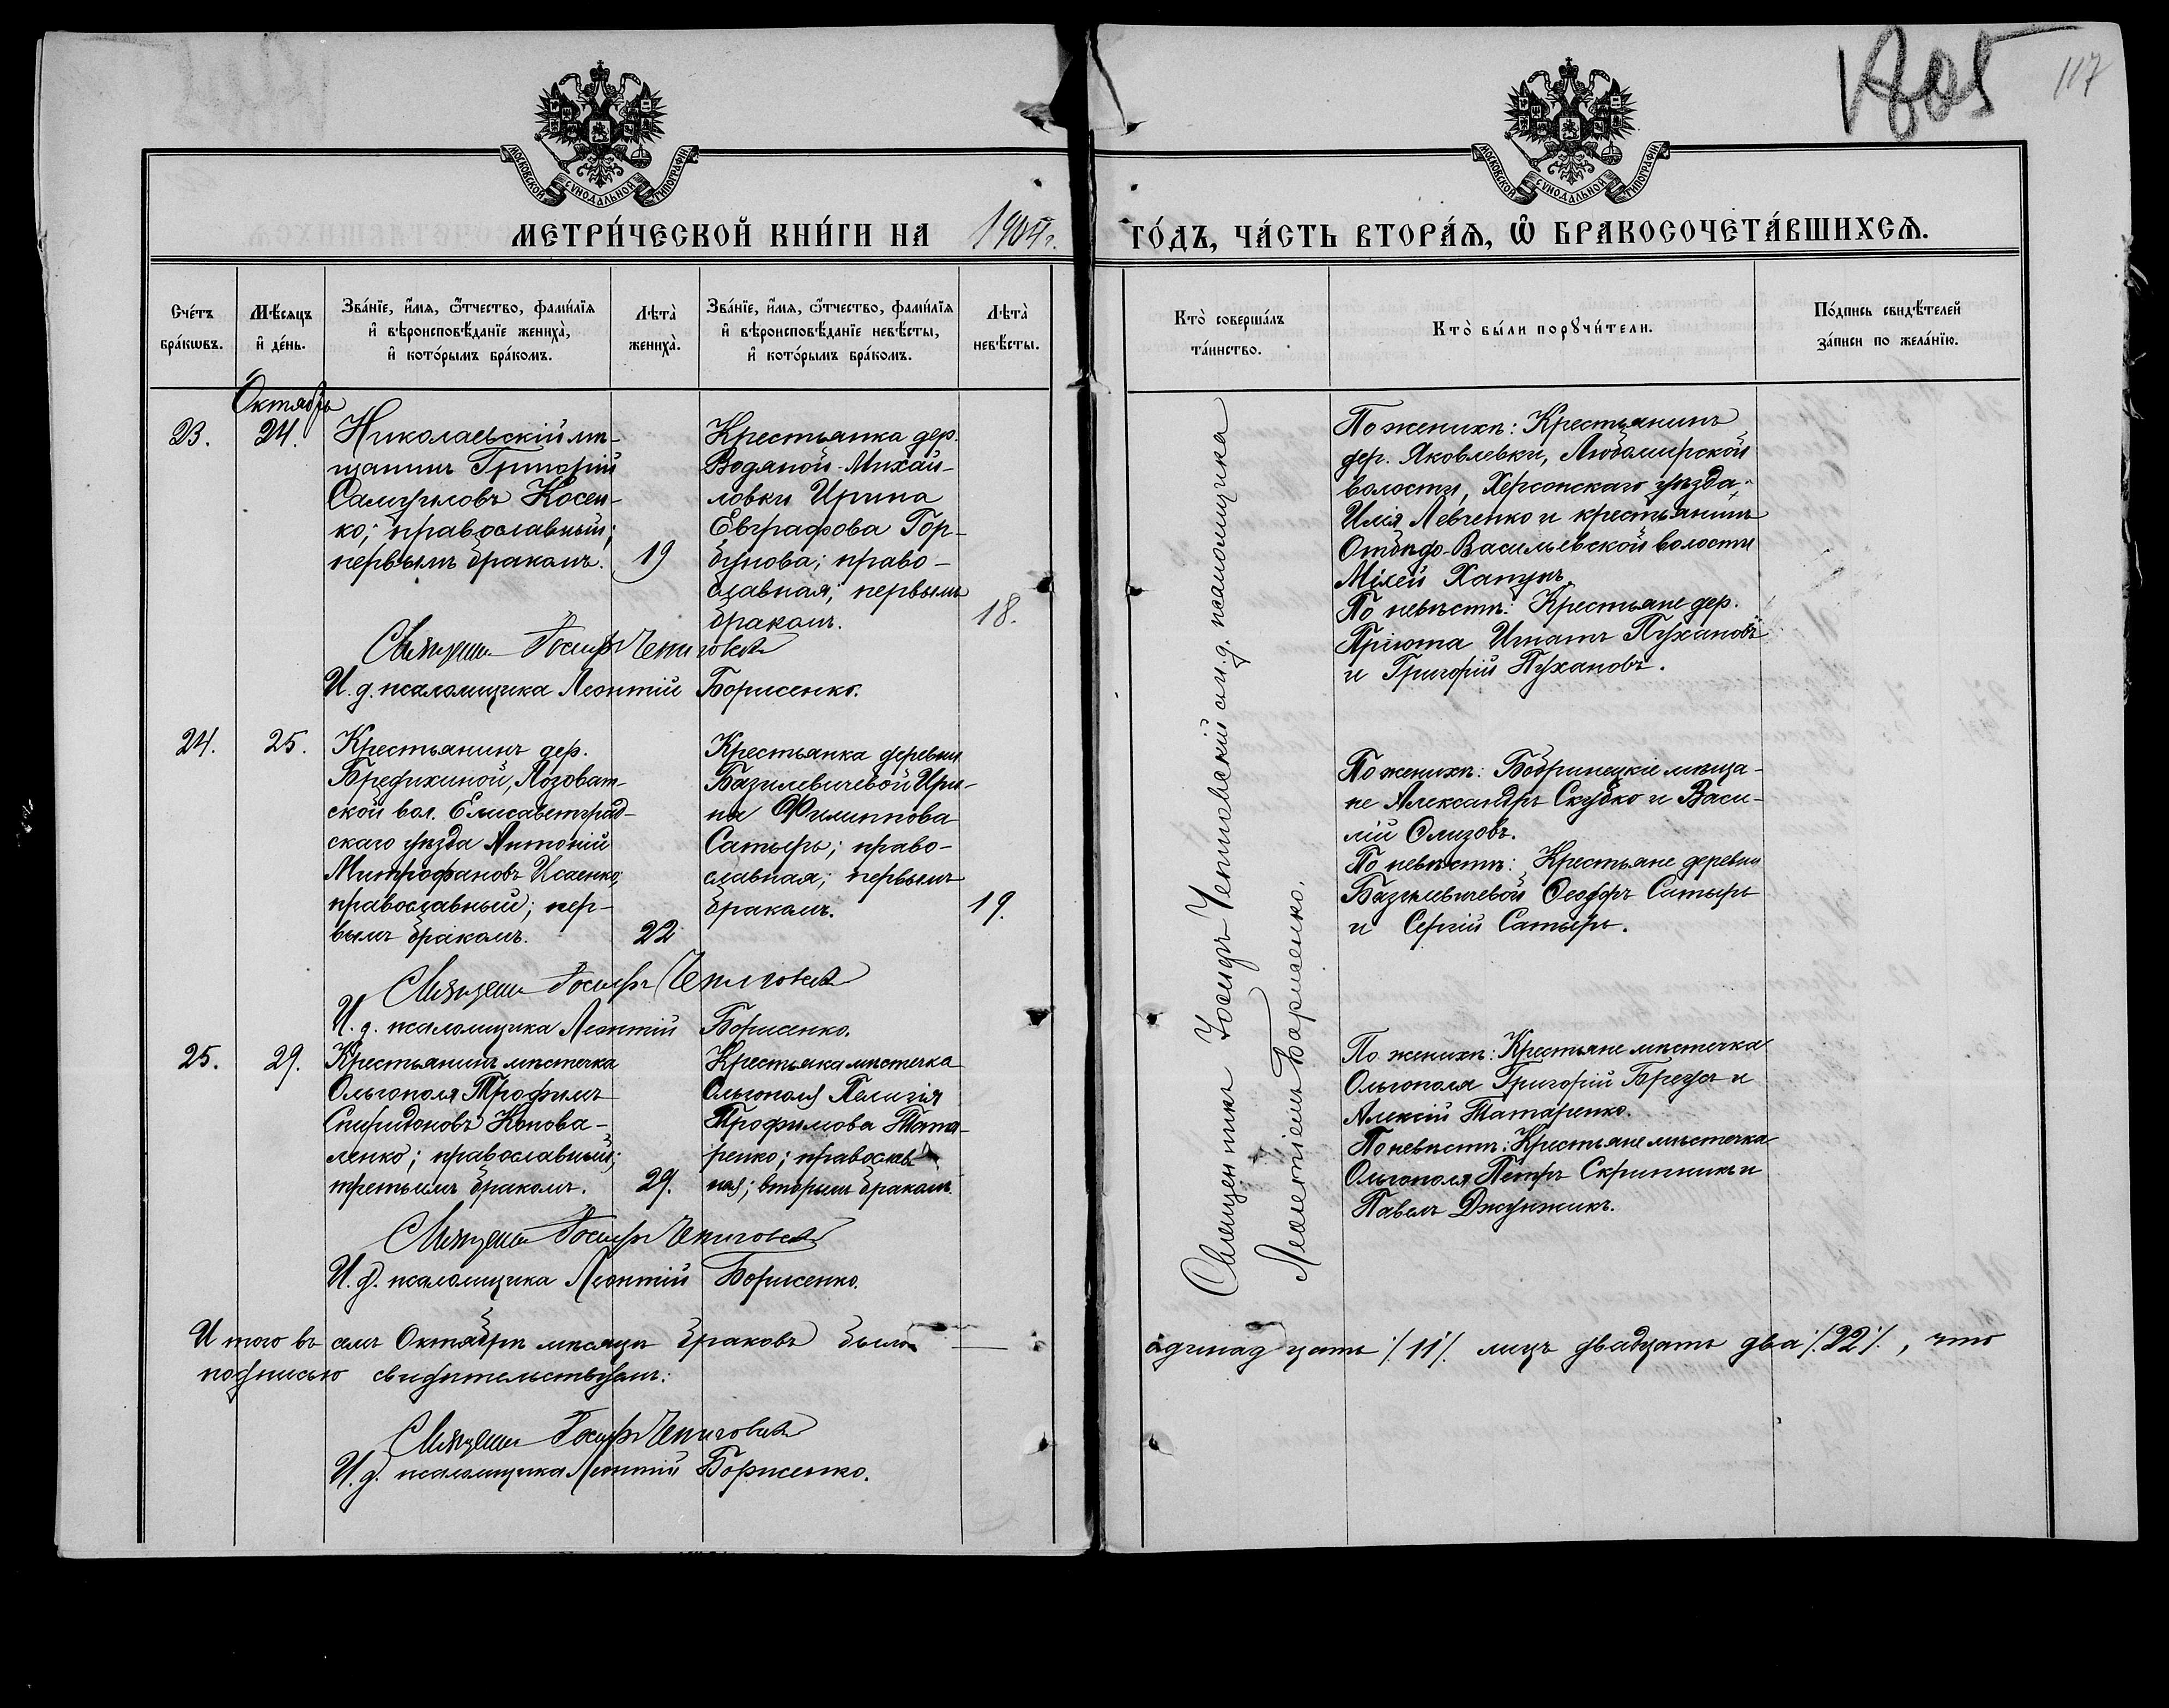 1805
117
МОСКОВСКОЙ СѴНОДАЛЬНОЙ ТИПОГРАФІИ
МОСКОВСКОЙ СѴНОДАЛЬНОЙ ТИПОГРАФІИ
МЕТРИ́ЧЕСКОЙ КНИ́ГИ НА 1904 г. ГО́ДЪ, ЧА́СТЬ ВТОРА́Ѧ, Ѡ БРАКОСОЧЕТА́ВШИХСѦ.
Сче́тъ бра́кѡвъ.
Мѣ́сяцъ и҆ де́нь.
Зва́нїе, и҆́мѧ, ѻ҆́тчество, фамилі́ѧ
и҆ вѣроисповѣ́данїе жениха̀,
и҆ кото́рымъ бра́комъ.
Лѣта̀ жениха̀.
Зва́нїе, и҆́мѧ, ѻ҆́тчество, фамилі́ѧ
и҆ вѣроисповѣ́данїе невѣ́сты,
и҆ кото́рымъ бра́комъ.
Лѣта̀ невѣ́сты.
Кто̀ соверша́лъ
та́инство.
Кто̀ бы́ли порꙋчи́тели.
По́дпись свидѣ́телей
за́писи по жела́нїю.
Октябрь
23.
24.
Николаевскій мѣ-
щанинъ Григорій
Самуиловъ Косен-
ко; православный;
первымъ бракомъ.
19
Крестьянка дер.
Водяной-Михай-
ловки Ирина
Евграфова Гор-
бунова; право-
славная; первымъ
бракомъ.
18.
По женихѣ: Крестьянинъ
дер. Яковлевки, Любомирской
волости, Херсонскаго уѣзда
Илія Левченко и крестьянинъ
Отбѣдо-Васильевской волости
По невѣстѣ: Крестьяне дер.
Пріюта Игнатъ Пухановъ
и Григорій Пухановъ.
Священникъ Іосифъ
И. д. псаломщика Леонтій Борисенко.
24.
25.
Крестьянинъ дер.
Бредихиной, Лозоват-
ской вол. Елисаветград-
скаго уѣзда Антоній
Митрофановъ Исаенко;
православный; пер-
вымъ бракомъ.
22
Крестьянка деревни
Базилевичевой Ири-
на Филиппова
Сатыръ; право-
славная; первымъ
бракомъ.
19.
По женихѣ: Бобринецкіе мѣща-
не Александръ Скубко и Васи-
лій Слизовъ.
По невѣстѣ: Крестьяне деревни
Базилевичевой Ѳеодоръ Сатыръ
и Сергій Сатыръ.
Священникъ Іосифъ
И. д. псаломщика Леонтій Борисенко.
25.
29.
Крестьянинъ мѣстечка
Ольгополя Трофимъ
Спиридоновъ Конова-
ленко; православный;
третьимъ бракомъ.
29.
Крестьянка мѣстечка
Ольгополя Пелагія
Трофимова Тата-
ренко; православ
ная; вторымъ бракомъ.
По женихѣ: Крестьяне мѣстечка
Ольгополя Григорій и
Алексій Татаренко.
По невѣстѣ: Крестьяне мѣстечка
Ольгополя Петръ Скрипникъ и
Павелъ Джунжикъ.
Священникъ Іосифъ
И. д. псаломщика Леонтій Борисенко.
Священникъ Іосифъ с и. д. псаломщика
Леонтіемъ Борисенко.
Итого въ семъ Октябрѣ мѣсяцѣ браковъ было — одинадцать /11/. лицъ двадцать два /22/., что
подписью свидѣтельствуемъ:
Священникъ Іосифъ
И. д. псаломщика Леонтій Борисенко.